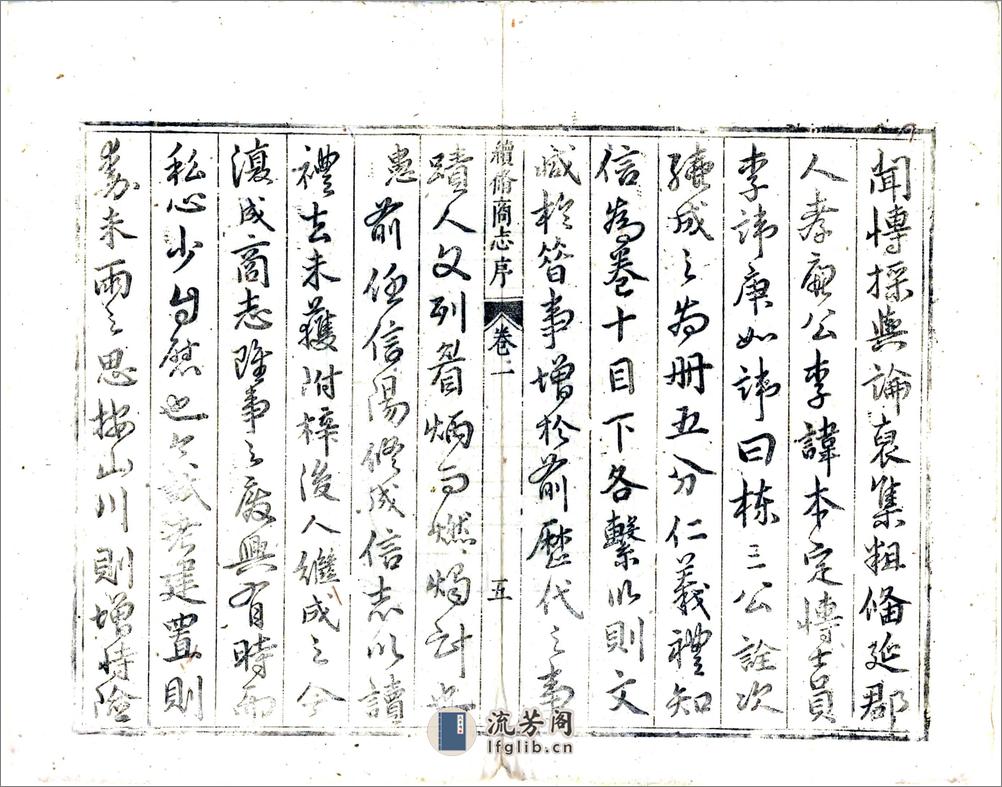 聞博採輿論裒集粗備延郡
人孝廉公李諱本定博士員
李諱庚如諱曰棟三公詮次
續成之為冊五分仁義禮知
信為卷十目下各繫以則文
減於昝事增於前歷代之事
續脩商志序 卷一 五
蹟人文列眉炳而燃燭計也
憲前任信陽修成信志以讀
禮去未獲附梓後人繼成之今
復成商志雖事之廢興有時而
私心少自慰也今試若建置則
未雨之思按山川則增時險
流芳阁
lfglib.cn